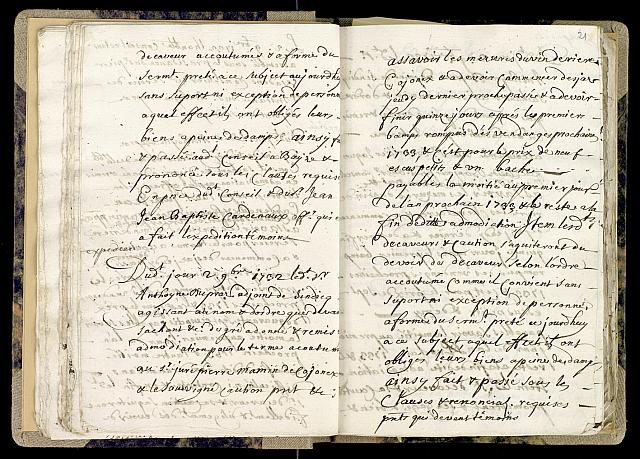 decaveur accoutumés & a forme du
serm.t preté a ce subject aujourdhuy
sans suport ni exception de personne
a quel effect ils ont obligés leurs
biens a peine de damps, ainsy fa
& passé aud.t Conseil a
prononcé sous les Clauses requise
En pnce dud.t Conseil & du s.r Jean
Jean Baptiste Cardenaux off.l qui
a fait lexpedition témoins
expedié
Dud.t jour 2 9bre 1732
Anthoyne adjoint de sindicq
agissant au nom & dordre que devant
sachant & de gré a donné & remis
admodiation pour le terme accoutumé
au s.r juré pierre mamin de Cojonex
& le caution pnt &c
21
assavoir les mesures du vin derriere
Cojonex & a devoir Commencer des jar
jeudy dernier proche passé & a devoir
finir quinze jours apres les premier
bamps rompus des vendanges prochaine
1733 & c'est pour le prix de neuf
escus petits & un bache
payables la moitié au premier jour
de lan prochain 1733 & le reste a la
fin de ditte admodiation Item lesd.
decaveurs & Caution saquiteront du
devoir du decaveur selon lordre
accoutumé Comme il Convient sans
suport ni exception de personne
a forme du serm.t preté ce jourdhuy
a ce subject a quel effect ils ont
obligés leurs biens a peine de damp
ainsy fait & passé sous les
Clauses & renonciat. requises
pnts qui devant témoins